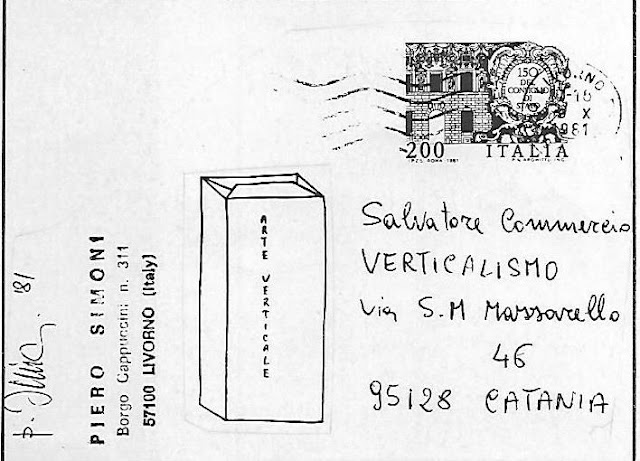 150
DEL
CONSIGLIO
DI
STATO
200 ITALIA
I.P.Z.S. ROMA 1981
X
1981
Salvatore Commercio
VERTICALISMO
Via S.M Mazzarello
46
95128 CATANIA
ARTE VERTICALE
PIERO SIMONI
Borgo Cappuccini n. 311
57100 LIVORNO (Italy)
'81